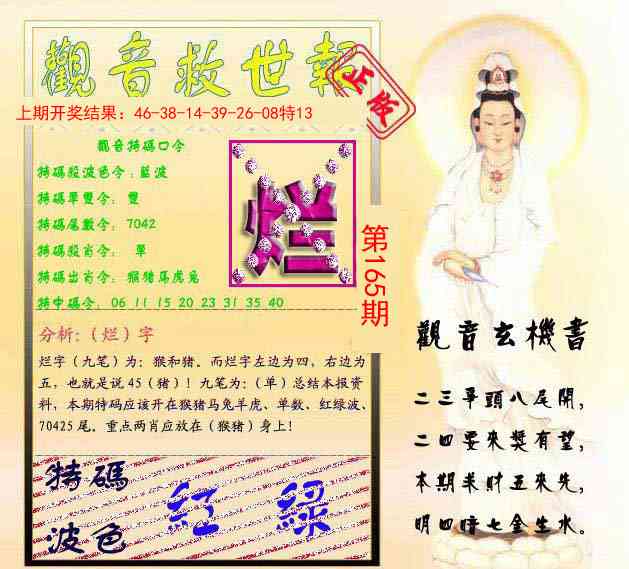 觀音救世報
正版
上期开奖结果：46-38-14-39-26-08特13
觀音特碼口令
特碼股波色令：藍波
特碼單雙令：雙
特碼尾數令：7042
特碼股肖令：單
特碼出肖令：猴猪馬虎兔
特中碼令：06 11 15 20 23 31 35 40
烂
第165期
分析:（烂）字
烂字（九笔）为：猴和猪。而烂字左边为四，右边为
五，也就是说 45（猪）！九笔为：（单）总结本报资
料，本期特码应该开在猴猪马兔羊虎、单数、红绿波、
70425 尾。重点两肖应放在（猴猪）身上！
特碼
波色
红 綠
觀音玄機書
二三爭頭八尾開，
二四要來獎有望，
本期求財五來先，
明四暗七金生水。